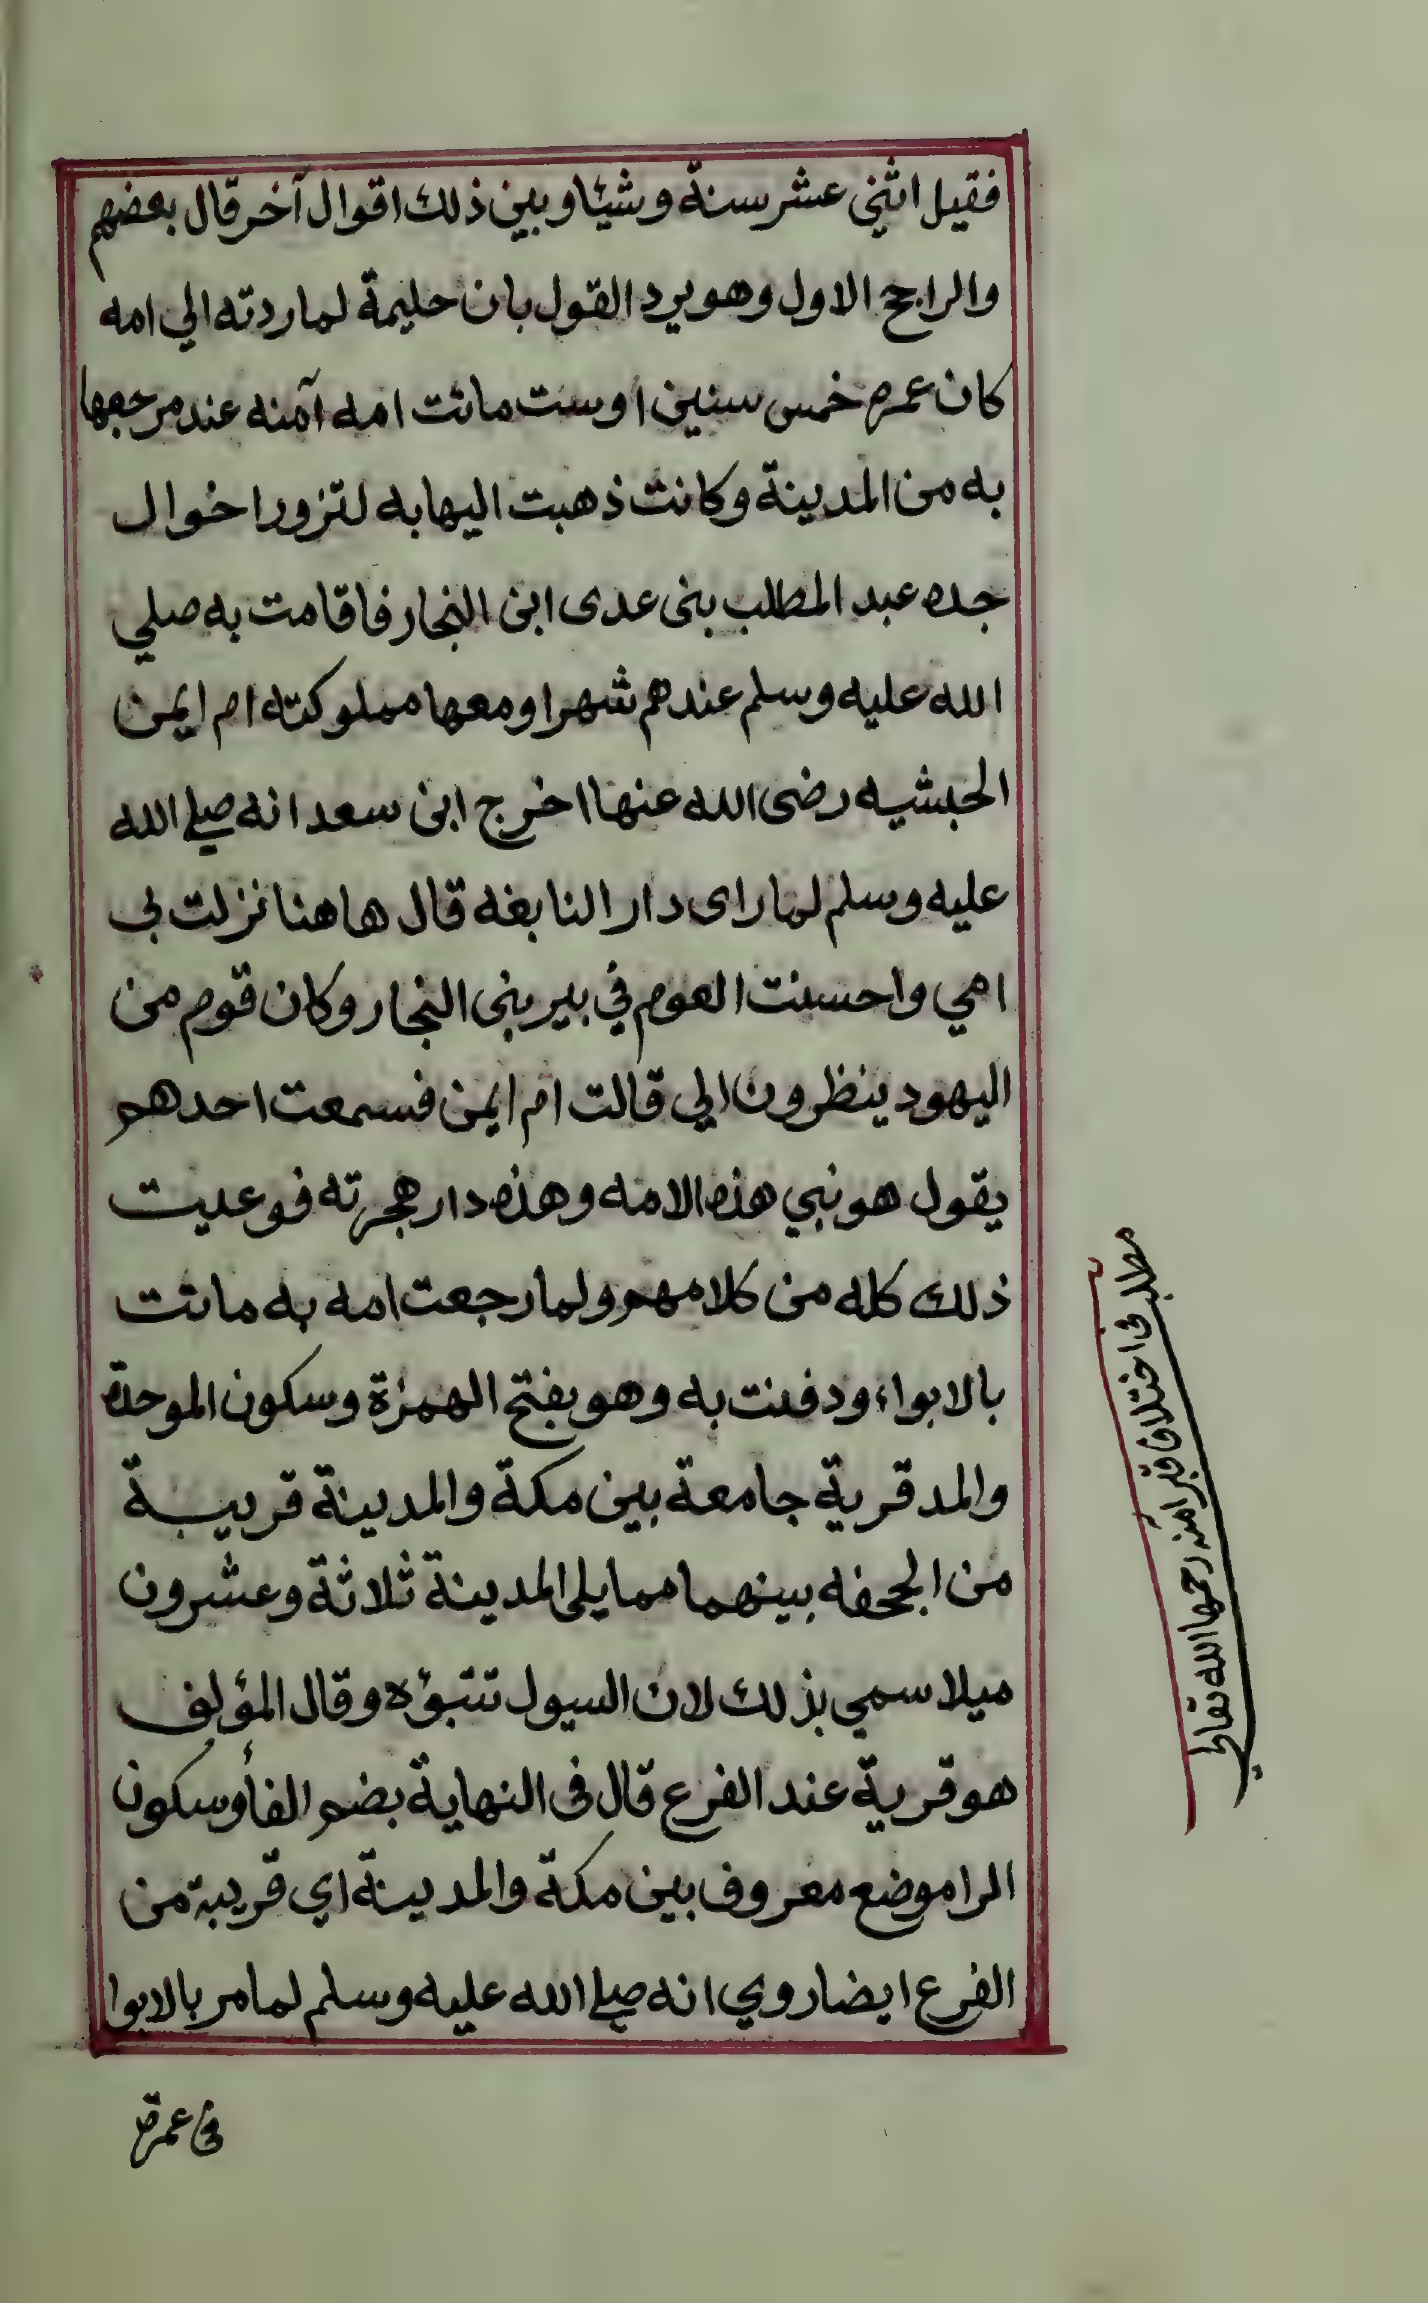 فقيل اثنى عشر سنة وشيئا وبين ذلك اقوال آخر قال بعضهم
والراجح الاول وهو يرد القول بان حليمة لما ردته الي امه
كان عمره خمس سنين او ست ماتت امه آمنه عند مرجعها
به من المدينة وكانت ذهبت اليها به لتزور اخوال
جده عبد المطلب بنى عدى ابن النجار فاقامت به صلي
الله عليه وسلم عندهم شهرا ومعها مملوكته ام ايمن
الحبشيه رضى الله عنها اخرج ابن سعد انه صلى الله
عليه وسلم لما راى دار النابغه قال هاهنا نزلت بى
امي واحسنت العوم في بير بنى النجار وكان قوم من
اليهود ينظرون الي قالت ام ايمن فسمعت احدهم
يقول هو نبي هذه الامه وهذه دار هجرته فوعيت
ذلك كله من كلامهم ولما رجعت امه به ماتت
بالابواء ودفنت به وهو بفتح الهمزة وسكون الموحدة
والمد قرية جامعة بين مكة والمدينة قريبة
من الجحفه بينهما مما يلى المدينة ثلاثة وعشرون
ميلا سمي بذلك لان السيول تتبؤه وقال المؤلف
هو قرية عند الفرع قال فى النهاية بضم الفأ وسكون
الرا موضع معروف بين مكة والمدينة اي قريبة من
الفرع ايضا روي انه صلى الله عليه وسلم لما مر بالابوا
فى عمرة
مطلب فى اختلاف قبر امنه رحمها الله تعالى